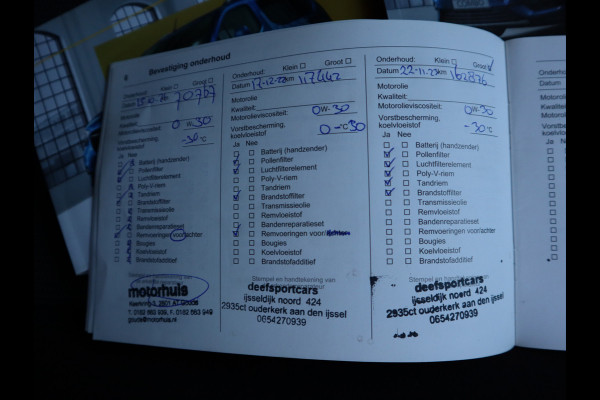 8
Bevestiging onderhoud
Onderhoud: Klein Groot
Datum km 70767
Motorolie
Kwaliteit:
Motorolieviscositeit: 0 W-30
Vorstbescherming,
koelvloeistof -36°C
Ja Nee
Batterij (handzender)
Pollenfilter
Luchtfilterelement
Poly-V-riem
Tandriem
Brandstoffilter
Transmissieolie
Remvloeistof
Bandenreparatieset
Remvoeringen voor/achter
Bougies
Koelvloeistof
Brandstofadditief
motorhuis
T. 0182 663 939, F. 0182 663 949
Onderhoud: Klein Groot
Datum 17-12-22 km 117442
Motorolie
Kwaliteit:
Motorolieviscositeit: 0W-30
Vorstbescherming,
koelvloeistof 0 -°C 30
Ja Nee
Batterij (handzender)
Pollenfilter
Luchtfilterelement
Poly-V-riem
Tandriem
Brandstoffilter
Transmissieolie
Remvloeistof
Bandenreparatieset
Remvoeringen voor/
Bougies
Koelvloeistof
Brandstofadditief
Stempel en handtekening van
deefsportcars
ijsseldijk noord 424
2935ct ouderkerk aan den ijssel
0654270939
Onderhoud: Klein Groot
Datum 22-11-23 km 162876
Motorolie
Kwaliteit:
Motorolieviscositeit: 0W-30
Vorstbescherming,
koelvloeistof -30°C
Ja Nee
Batterij (handzender)
Pollenfilter
Luchtfilterelement
Poly-V-riem
Tandriem
Brandstoffilter
Transmissieolie
Remvloeistof
Bandenreparatieset
Remvoeringen voor/achter
Bougies
Koelvloeistof
Brandstofadditief
deefsportcars
ijsseldijk noord 424
2935ct ouderkerk aan den ijssel
0654270939